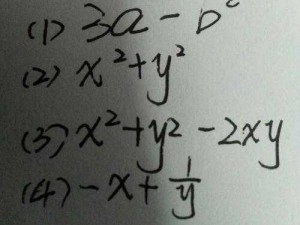 (1) 3a - b²
(2) x² + y²
(3) x² + y² - 2xy
(4) -x + 1/y